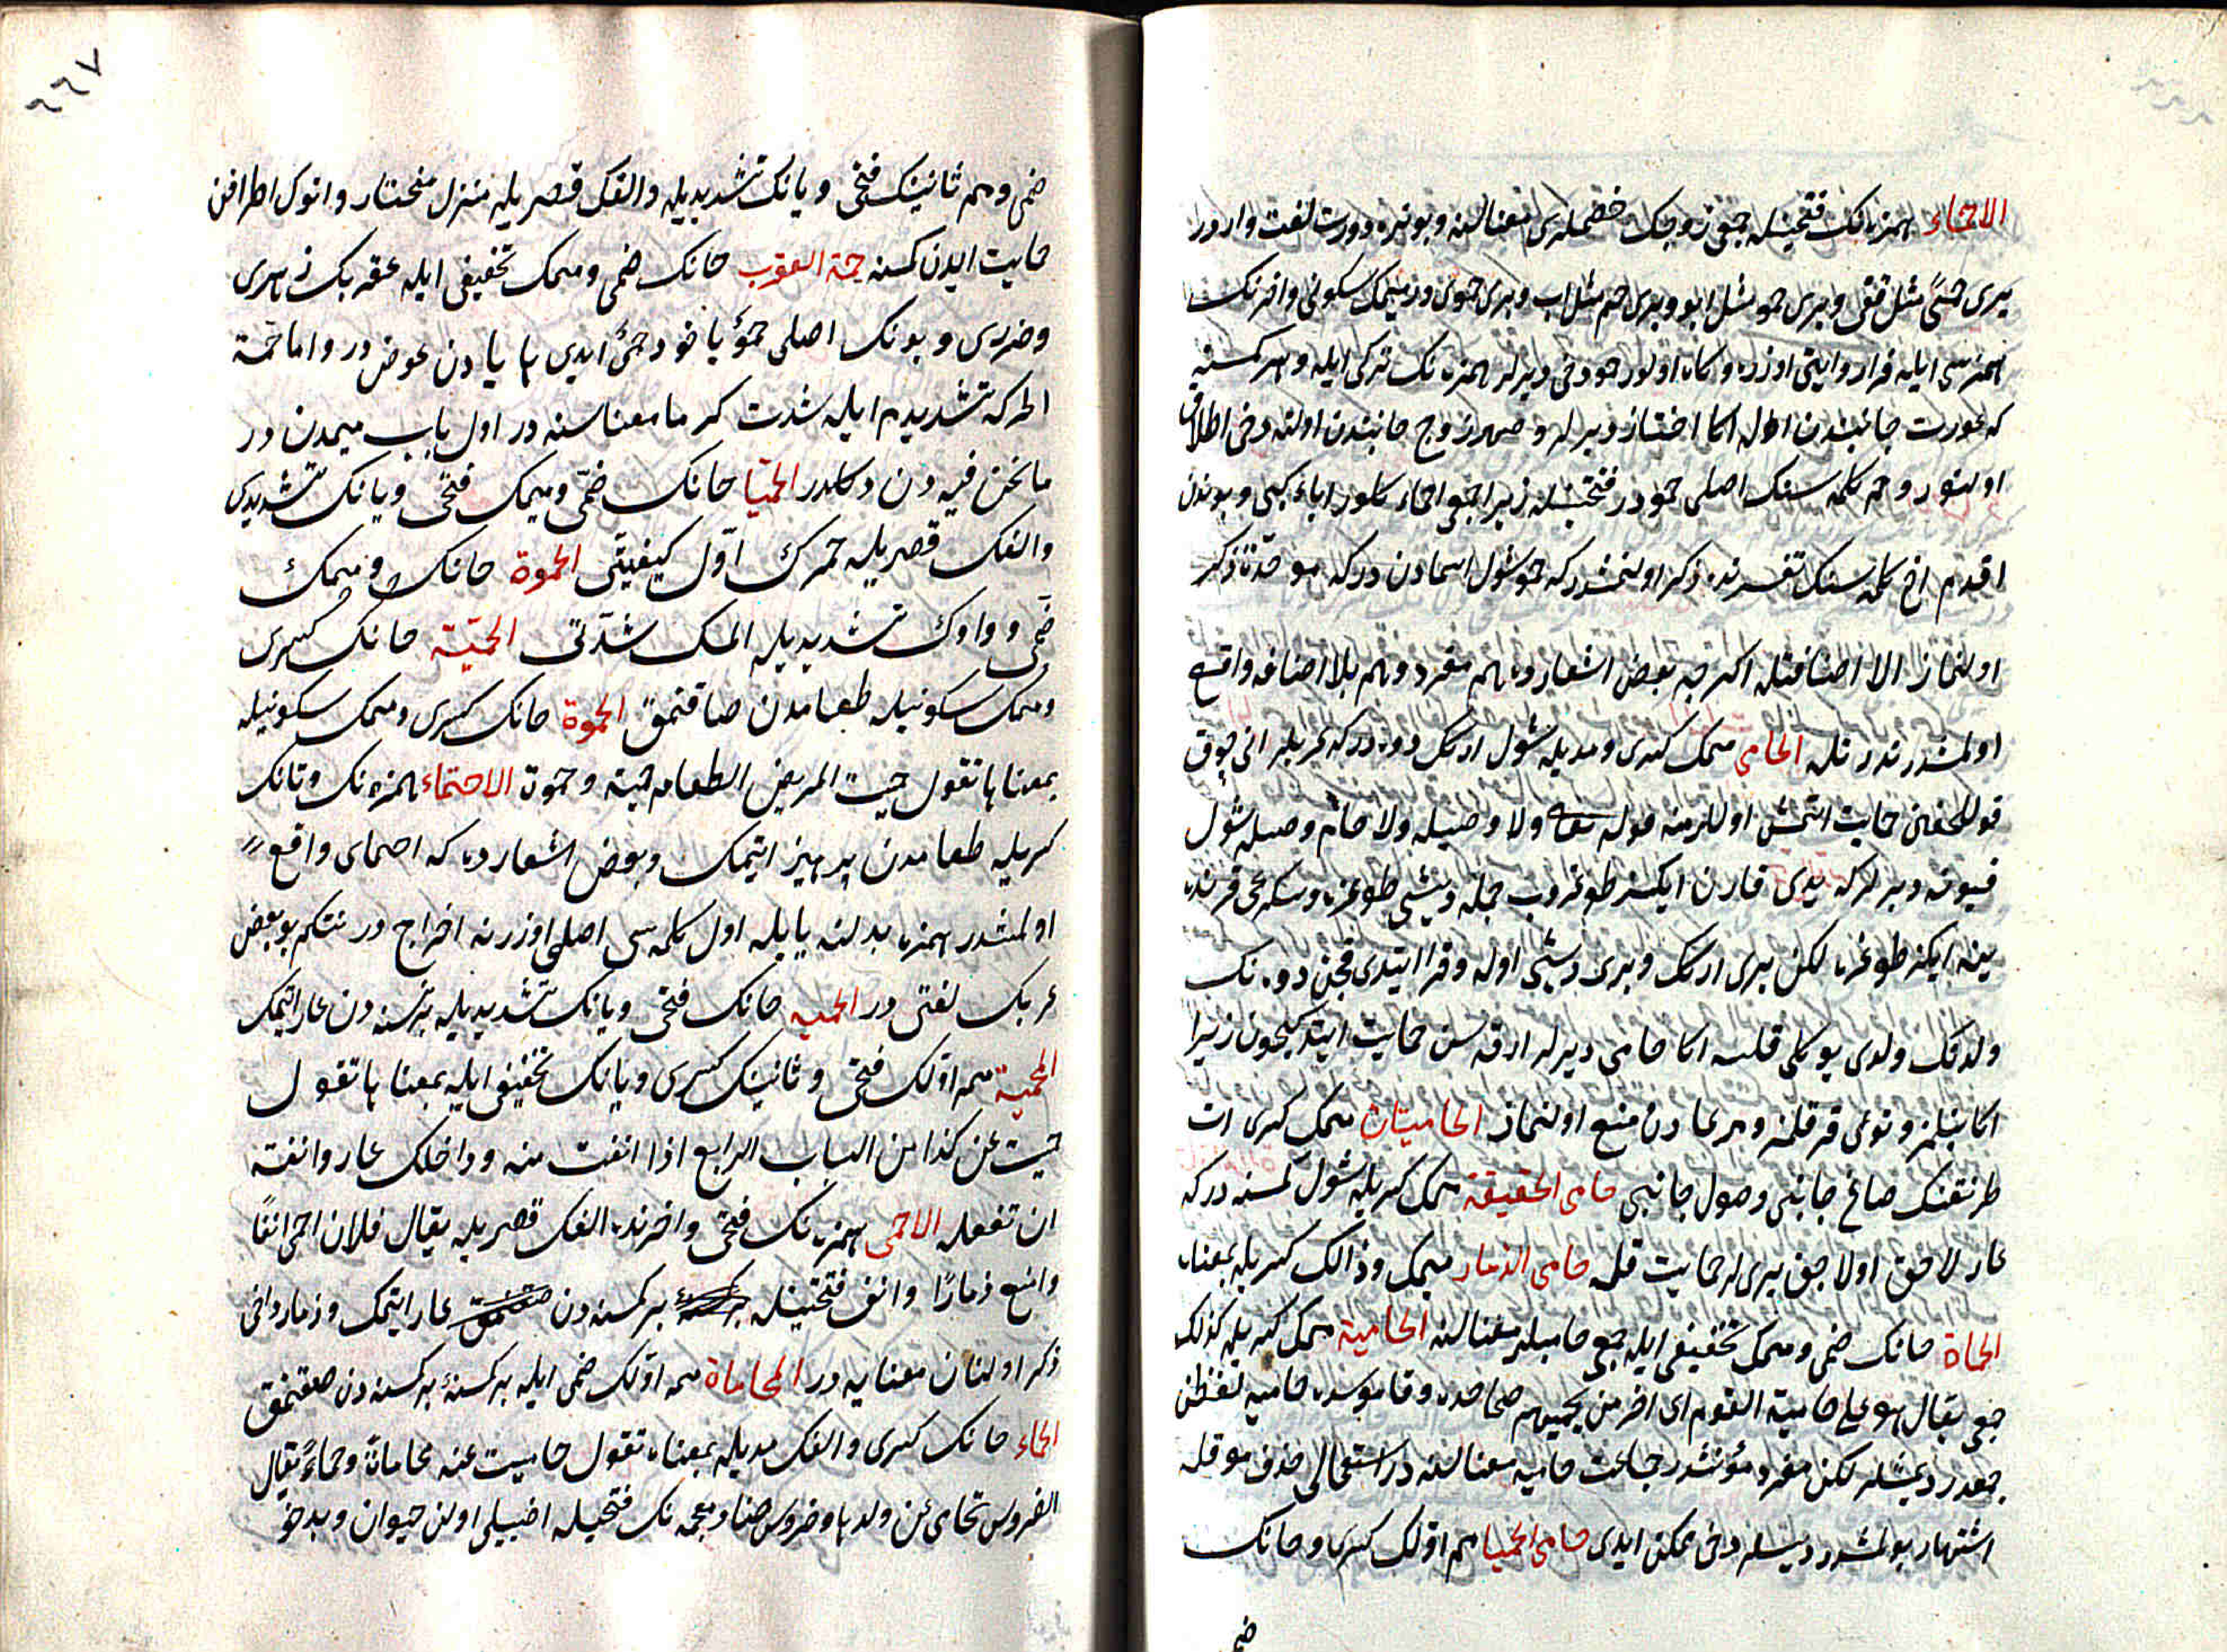 الاحماء همزه‌نك فتحيله جمعى زوجك خصملرى معناسنه و بونده دورت لغت واردر
بيرى حمًى مثل قفى و بيرى حمو مثل ابو و بيرى حم مثل اب و بيرى حموء در ميمك سكونى و اخرنك
همزسى ايله فرا روايتى اوزره و كاه اولور حمو دخى ديرلر همزه‌نك تركى ايله و هر كسنه
كه عورت جانبندن اوله اكا اختان ديرلر و صهر زوج جانبندن اولنه دخى اطلاق
اولنور و حم كلمه سنك اصلى حمو در فتحتيله زيرا جمعى احماء كلور اباء كبى و بوندن
اقدم اخ كلمه سنك تفسيرنده ذكر اولنمشدر كه حمو شول اسمادن در كه موحدة ذكر
اولنماز الا اضافتله اكرچه بعض اشعارده هم مفرد و هم بلا اضافه واقع
اولمشدر ندرتله الحامى ميمك كسرى و مديله شول اركك دوه در كه عربلر انى چوق
قوللمغى حمايت اتمش اوللر منه قوله تعالى ولا وصيلة ولا حام وصيله شول
قيونه ديرلر كه يدى قارن ايكشر طوغروب جمله ديشى طوغره و سكزنجى قرننده
ينه ايكز طوغره لكن بيرى اركك و بيرى ديشى اوله و فرا ايتدى قچن دوه‌نك
ولدنك ولدى يوكلى قلسه اكا حامى ديرلر ارقه سن حمايت ايتدكيچون زيرا
اكا بنلمز و توكى قرقلمز و مرعادن منع اولنماز الحاميتان ميمك كسرى ات
طرنغنك صاغ جانبى و صول جانبى حامى الحقيقة ميمك كسريله شول كمسنه در كه
عار لاحق اولاجق يرى لر حمايت قله حامى الذمار ميمك و ذالك كسريله بمعناه
الحماة حانك ضمى و ميمك تخفيفى ايله جمعى حاميلر معناسنه الحامية ميمك كسريله كذلك
جمعى يقال هو على حامية القوم اى اخر من يحميهم صحاحده و قاموسده حاميه لفظن
جمعدر ديمشلر لكن مفرد مؤنثدر جماعت حاميه معناسنه در استعمالى حذف موقله
اشتهار بولمشدر ديسلر دخى ممكن ايدى حامى الحميا هم اوّلك كسرى و حانك
ضمى
٦٦٧
ضمى و هم ثانينك فتحى و يانك تشديديله و الفك قصريله منزل مختار و انوك اطرافن
حمايت ايدن كسنه حمة العقرب حانك ضمى و ميمك تخفيفى ايله عقربك زهرى
و ضررى و بونك اصلى حموٌ ياخود حمىٌ ايدى ها يادن عوض در و اما حمّة
الحر كه تشديد م ايله شدت كرما معناسنه در اول باب ميمدن در
ما نحن فيه دن دكلدر الحميّا حانك ضمّى و ميمك فتحى و يانك تشديدى
و الفك قصريله خمرك اوّل كيفيتى الحموة حانك و ميمك
ضمى و واوك تشديديله المك شدّتى الحمية حانك كسرى
و ميمك سكونيله طعامدن صاقنمق الحموة حانك كسرى و ميمك سكونيله
بمعناها تقول حميت المريض الطعام حمية و حموة الاحتماء همزه‌نك و تانك
كسريله طعامدن پرهيز ايتمك و بعض اشعارده كه احمماى واقع
اولمشدر همزه بدلنه يايله اول كلمه سى اصلى اوزرنه اخراج در نتكم بو بعض
عربك لغتى در الحميه حانك فتحى و يانك تشديديله بر نسنه دن عار ايتمك
المحمية ميم اوّلك فتحى و ثانينك كسرى و يانك تخفيفى ايله بمعناها تقول
حميت عن كذا من الباب الرابع اذا انفت منه و داخلك عار و انفة
ان تفعله الاحمى همزه‌نك فتحى و اخرنده الفك قصريله يقال فلان احمى انفًا
و امنع ذمارًا و انف فتحتيله بر كمسنه دن عار ايتمك و ذمار دخى
ذكر اولنان معنايه در المحاماة ميم اوّلك ضمى ايله بر كسنه‌ئ بر كسنه دن صقنمق
الحماء حانك كسرى و الفك مديله بمعناه تقول حاميت عنه محاماة و حماءً يقال
الضروس تحامى عن ولدها و ضروس ضاد معجمه‌نك فتحيله اضيلى اولن حيوان و بدخو